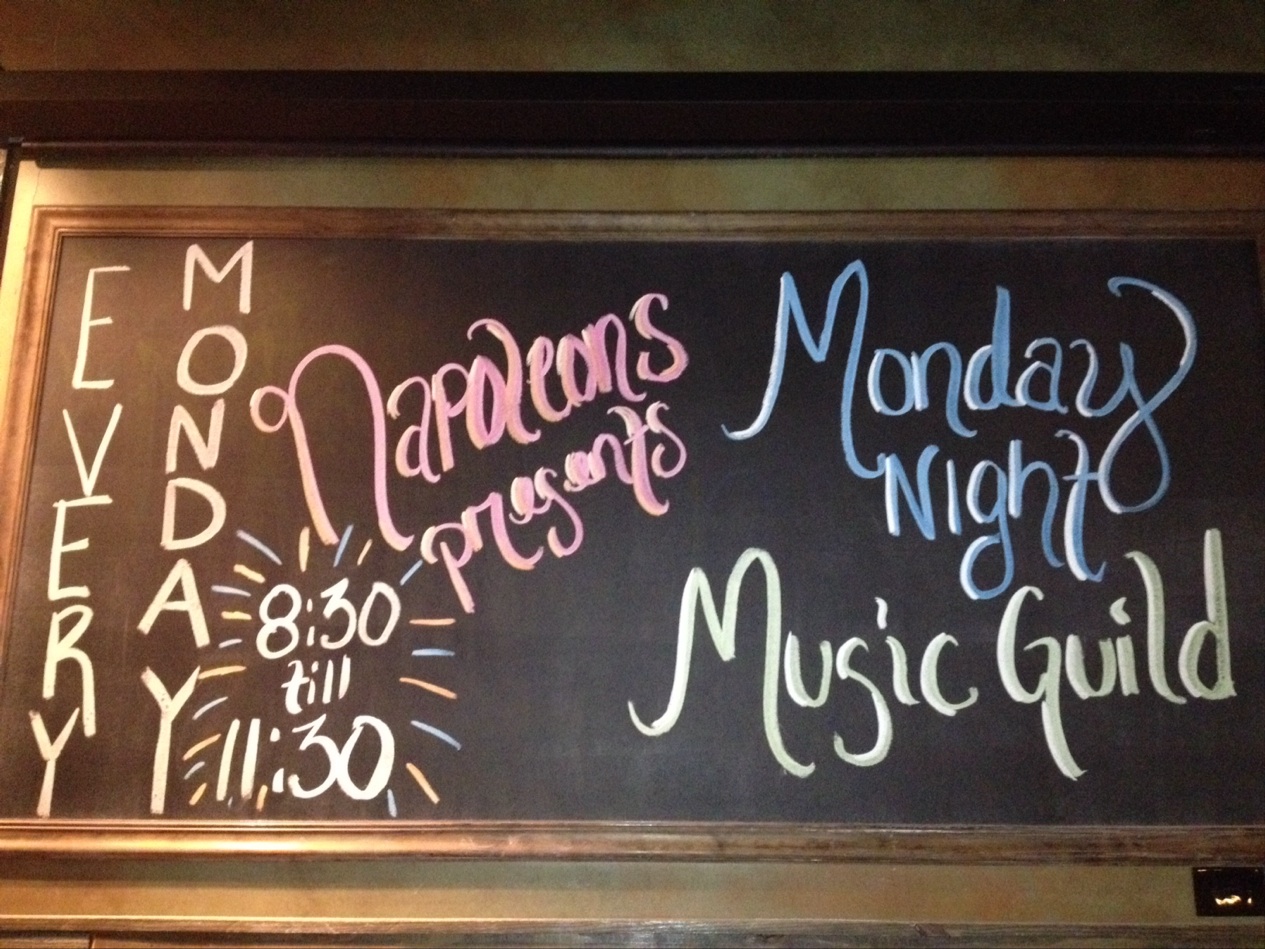 EVERY
MONDAY
Napoleons
presents
8:30
till
11:30
Monday
Night
Music Guild